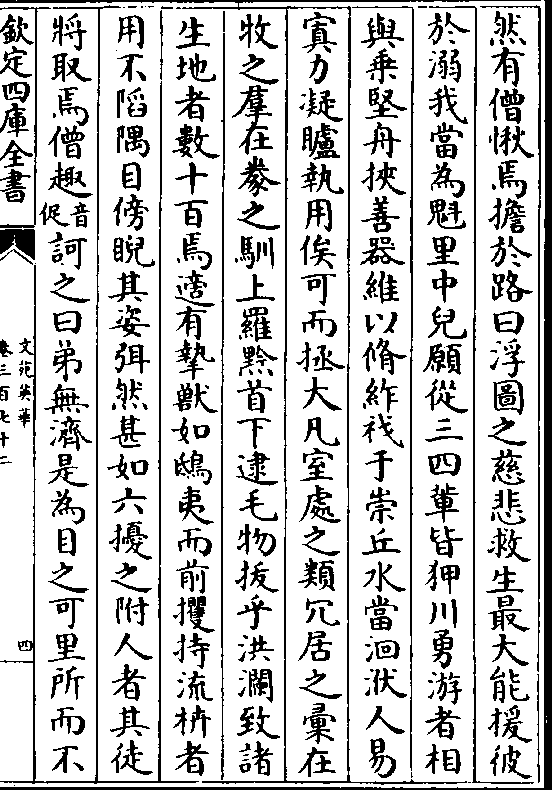 然有僧愀焉擔於路曰浮圖之慈悲救生最大能援彼
於溺我當為魁里中兒願從三四軰皆狎川勇游者相
與乗堅舟挾善器維以脩筰栰于崇丘水當洄洑人易
寘力凝矑執用俟可而拯大凡室處之類冗居之彙在
牧之羣在豢之馴上羅黔首下逮毛物拔乎洪瀾致諸
生地者數十百焉適有摯獸如鴟夷而前攫持流枿者
用不陷隅目傍睨其姿弭然甚如六擾之附人者其徒
將取焉僧趣音促訶之曰弟無濟是為目之可里所而不
欽定四庫全書
文苑英華
卷三百七十二
四